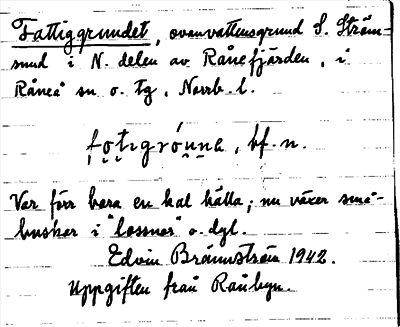 Fattiggrundet, ovanvattensgrund S. Ström-
sund i N. delen av Rånefjärden, i
Råneå sn o. tg, Norrb. l.
fo̤ti̤grónna, bf. n.
Var förr bara en kal hälla; nu växer små-
buskar i "lossnor" o. dyl.
Edvin Brännström 1942.
Uppgiften från Rånbyn.